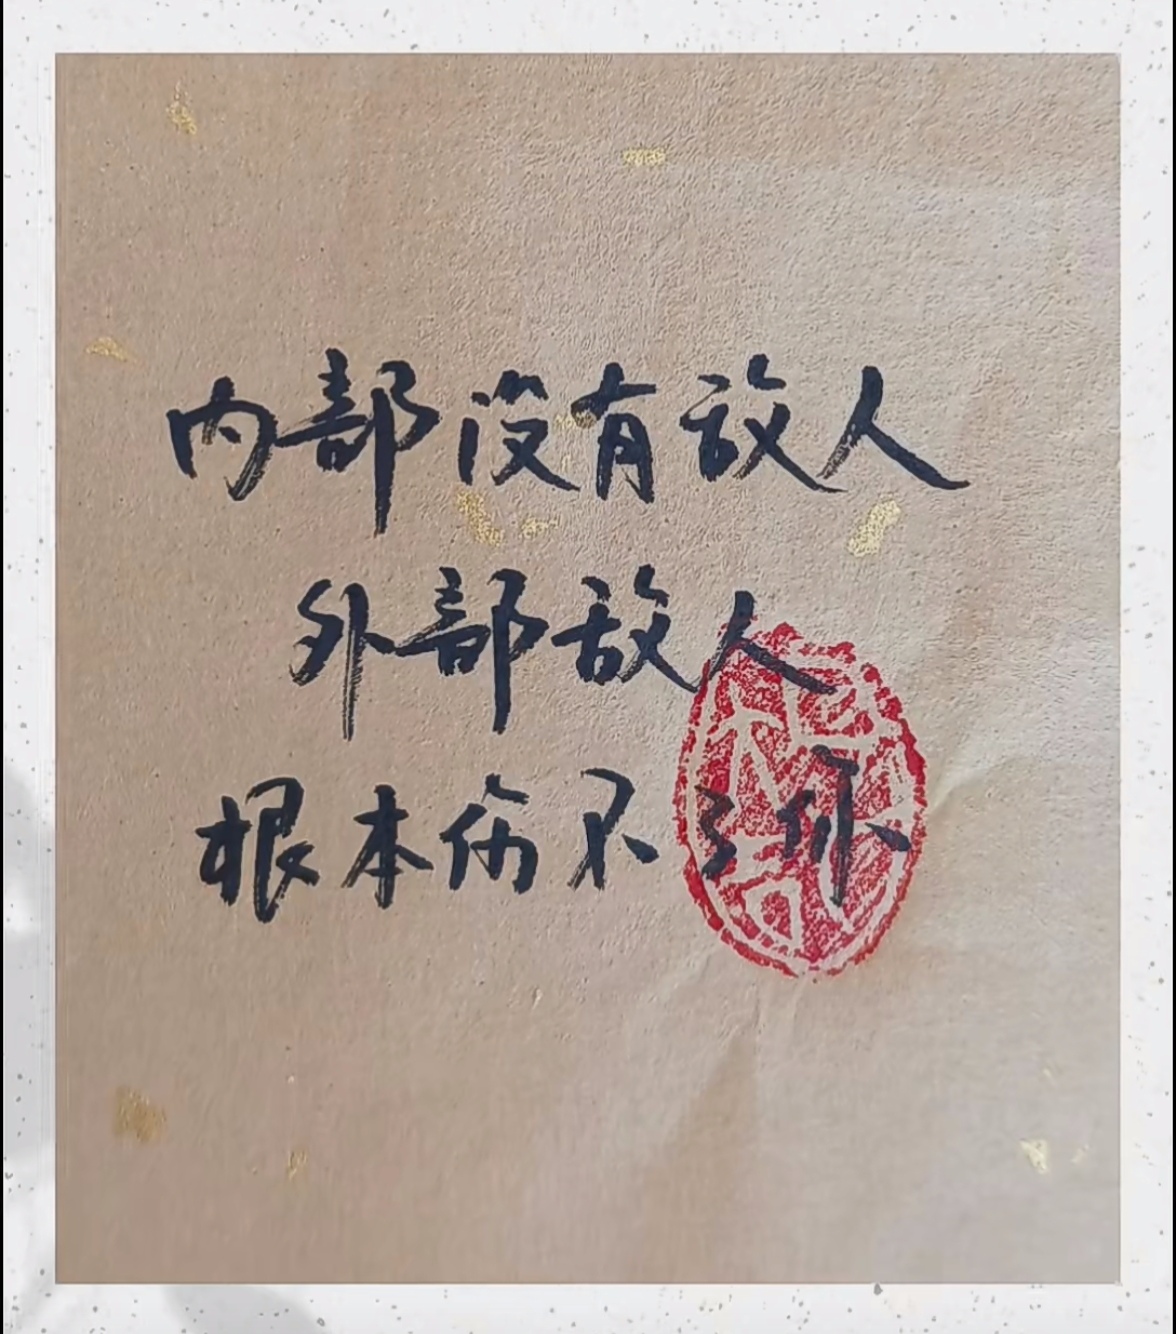 内部没有敌人
外部敌人
根本伤不了你